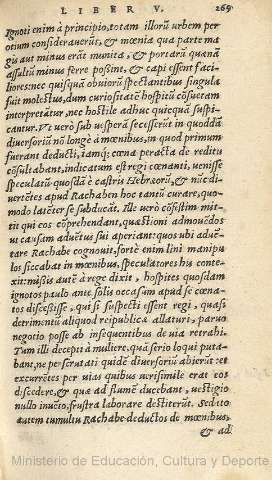 LIBER V. 269
Ignoti enim à principio, totam illorũ urbem per
otium considerauerũt, & mœnia qua parte ma
gis aut minus erãt munita, & portarũ quanã
assultũ minus ferre possint, & capi essent faci-
liores: nec quisquã obuiorũ spectantibus singula
fuit molestus, dum curiositatẽ hospitũ cõsuetam
interpretãtur, nec hostile adhuc quicquã suspi-
cantur. Vt uerò sub uesperã secesserũt in quoddã
diuersoriũ nõ longè à mœnibus, in quod primum
fuerant deducti, iamq; cœna peracta de reditu
cõsultabant, indicatum est regi cœnanti, uenisse
speculatũ quosdã è castris Hebræorũ, & nũc di-
uertẽtes apud Rachaben hoc tantũ curare, quo-
modo latẽter se subducãt. Ille uerò cõfestim mit-
tit qui eos cõprehendant, quæstioni admouẽdos
ut causam aduẽtus sui aperiant: quos ubi aduẽ-
tare Rachabe cognouit, fortè enim lini manipu
los siccabat in mœnibus, speculatores his conte-
xit: missis autẽ à rege dixit, hospites quosdam
ignotos paulo ante solis occasum apud se cœna-
tos discessisse, qui si suspecti essent regi, quasi
detrimẽtũ aliquod reipublicæ allaturi, paruo
negotio posse ab insequentibus de uia retrahi.
Tum illi decepti à muliere, quã serio loqui puta-
bant, ne perscrutati quidẽ diuersoriũ abierũt: et
excurrẽtes per uias quibus uerisimile erat eos
discedere, & quæ ad flumẽ ducebant, uestigio
nullo inuẽto, frustra laborare destiterũt. Sedato
autem tumultu Rachabe deductos de mœnibus,
& ad
Ministerio de Educación, Cultura y Deporte